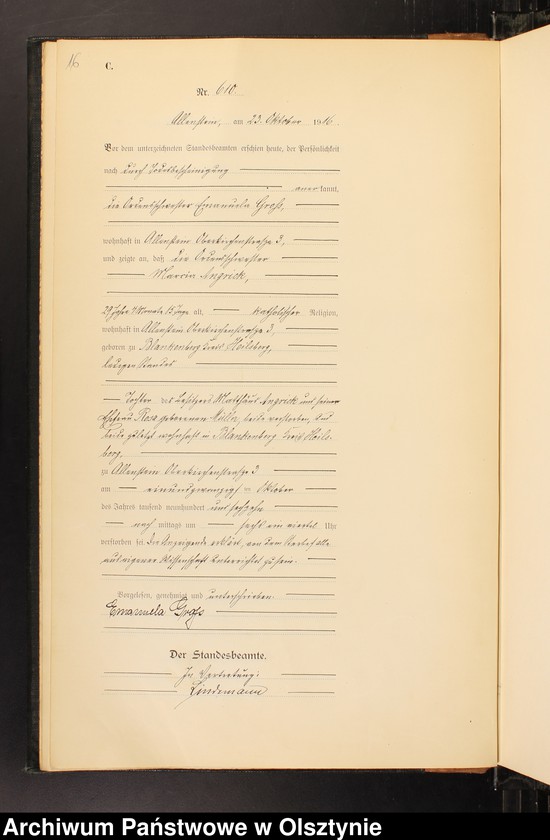 16
C.
Nr. 610
Allenstein, am 23. Oktober 1916.
Vor dem unterzeichneten Standesbeamten erschien heute, der Persönlichkeit
nach durch Todesbescheinigung
anerkannt,
die Ordensschwester Emanuela Groß,
wohnhaft in Allenstein Oberkirchenstraße 3,
und zeigte an, daß die Ordensschwester
Angrick,
29 Jahre 4 Monate 15 Tage alt, katholischer Religion,
wohnhaft in Allenstein Oberkirchenstraße 3,
geboren zu Blankenberg Kreis Heilsberg,
ledigen Standes
Tochter des Besitzers Matthäus Angrick und seiner
Ehefrau Rosa geborenen beide verstorben, und
beide zuletzt wohnhaft in Blankenberg Kreis Heils-
berg,
zu Allenstein Oberkirchenstraße 3
am einundzwanzigsten Oktober
des Jahres tausend neunhundert und sechzehn
nach mittags um sechs ein viertel Uhr
verstorben sei. Die Anzeigende erklärt, von dem Sterbefalle
aus eigener Wissenschaft unterrichtet zu sein.
Vorgelesen, genehmigt und unterschrieben.
Emanuela Groß
Der Standesbeamte.
In Vertretung:
Lindemann
Archiwum Państwowe w Olsztynie